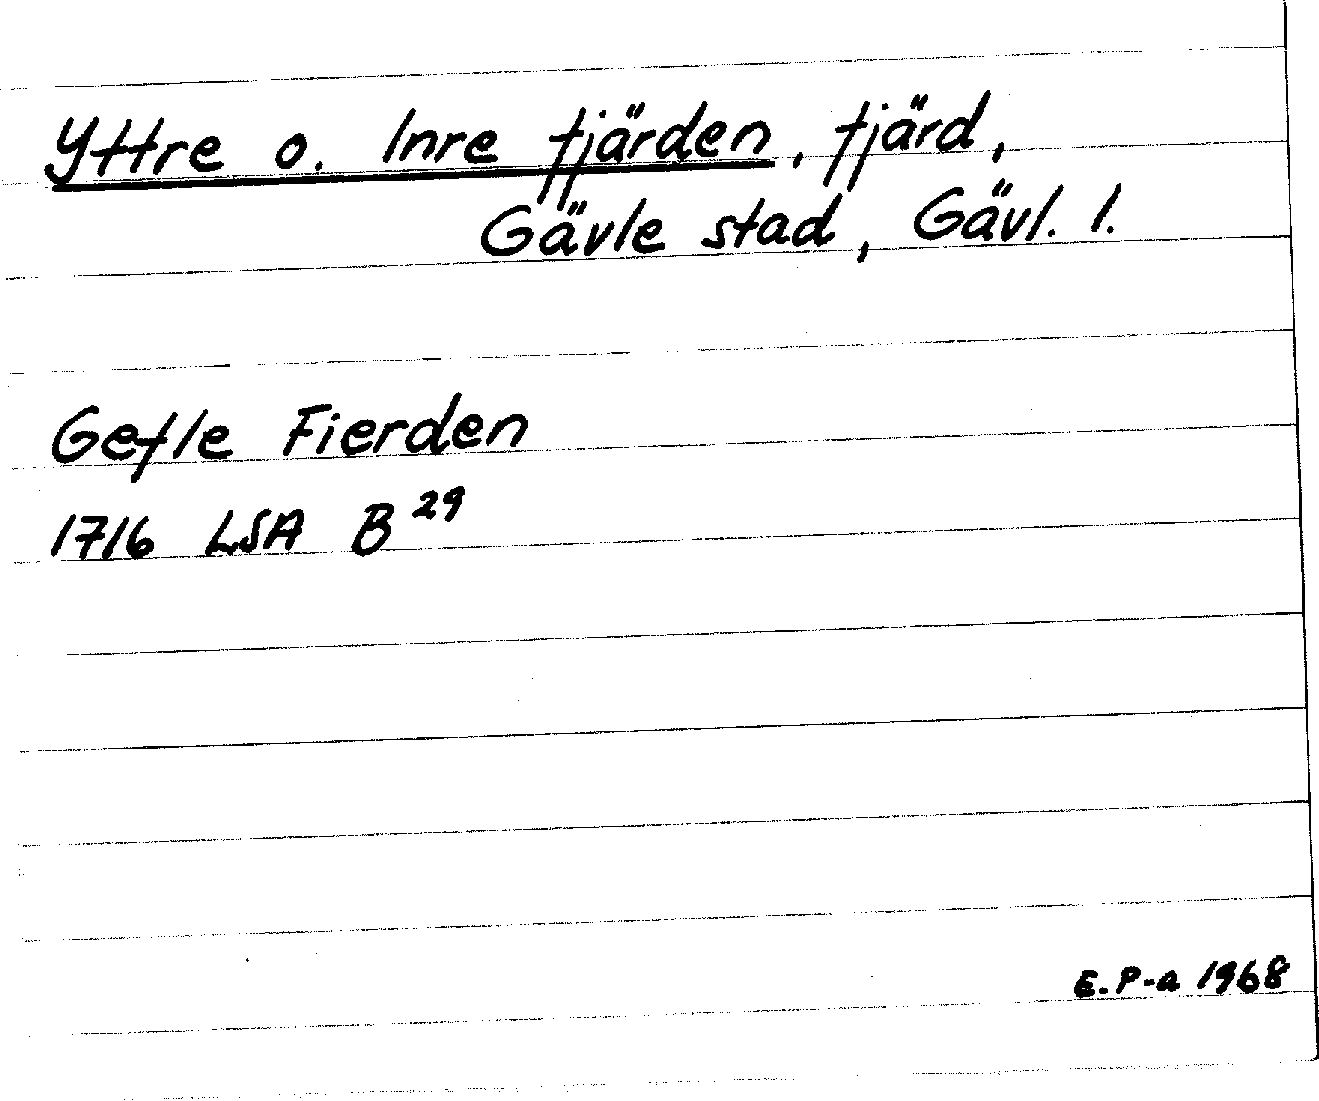 Yttre o. Inre fjärden, fjärd,
Gävle stad, Gävl. l.
Gefle Fierden
1716 LSA B 29
E. P-a 1968